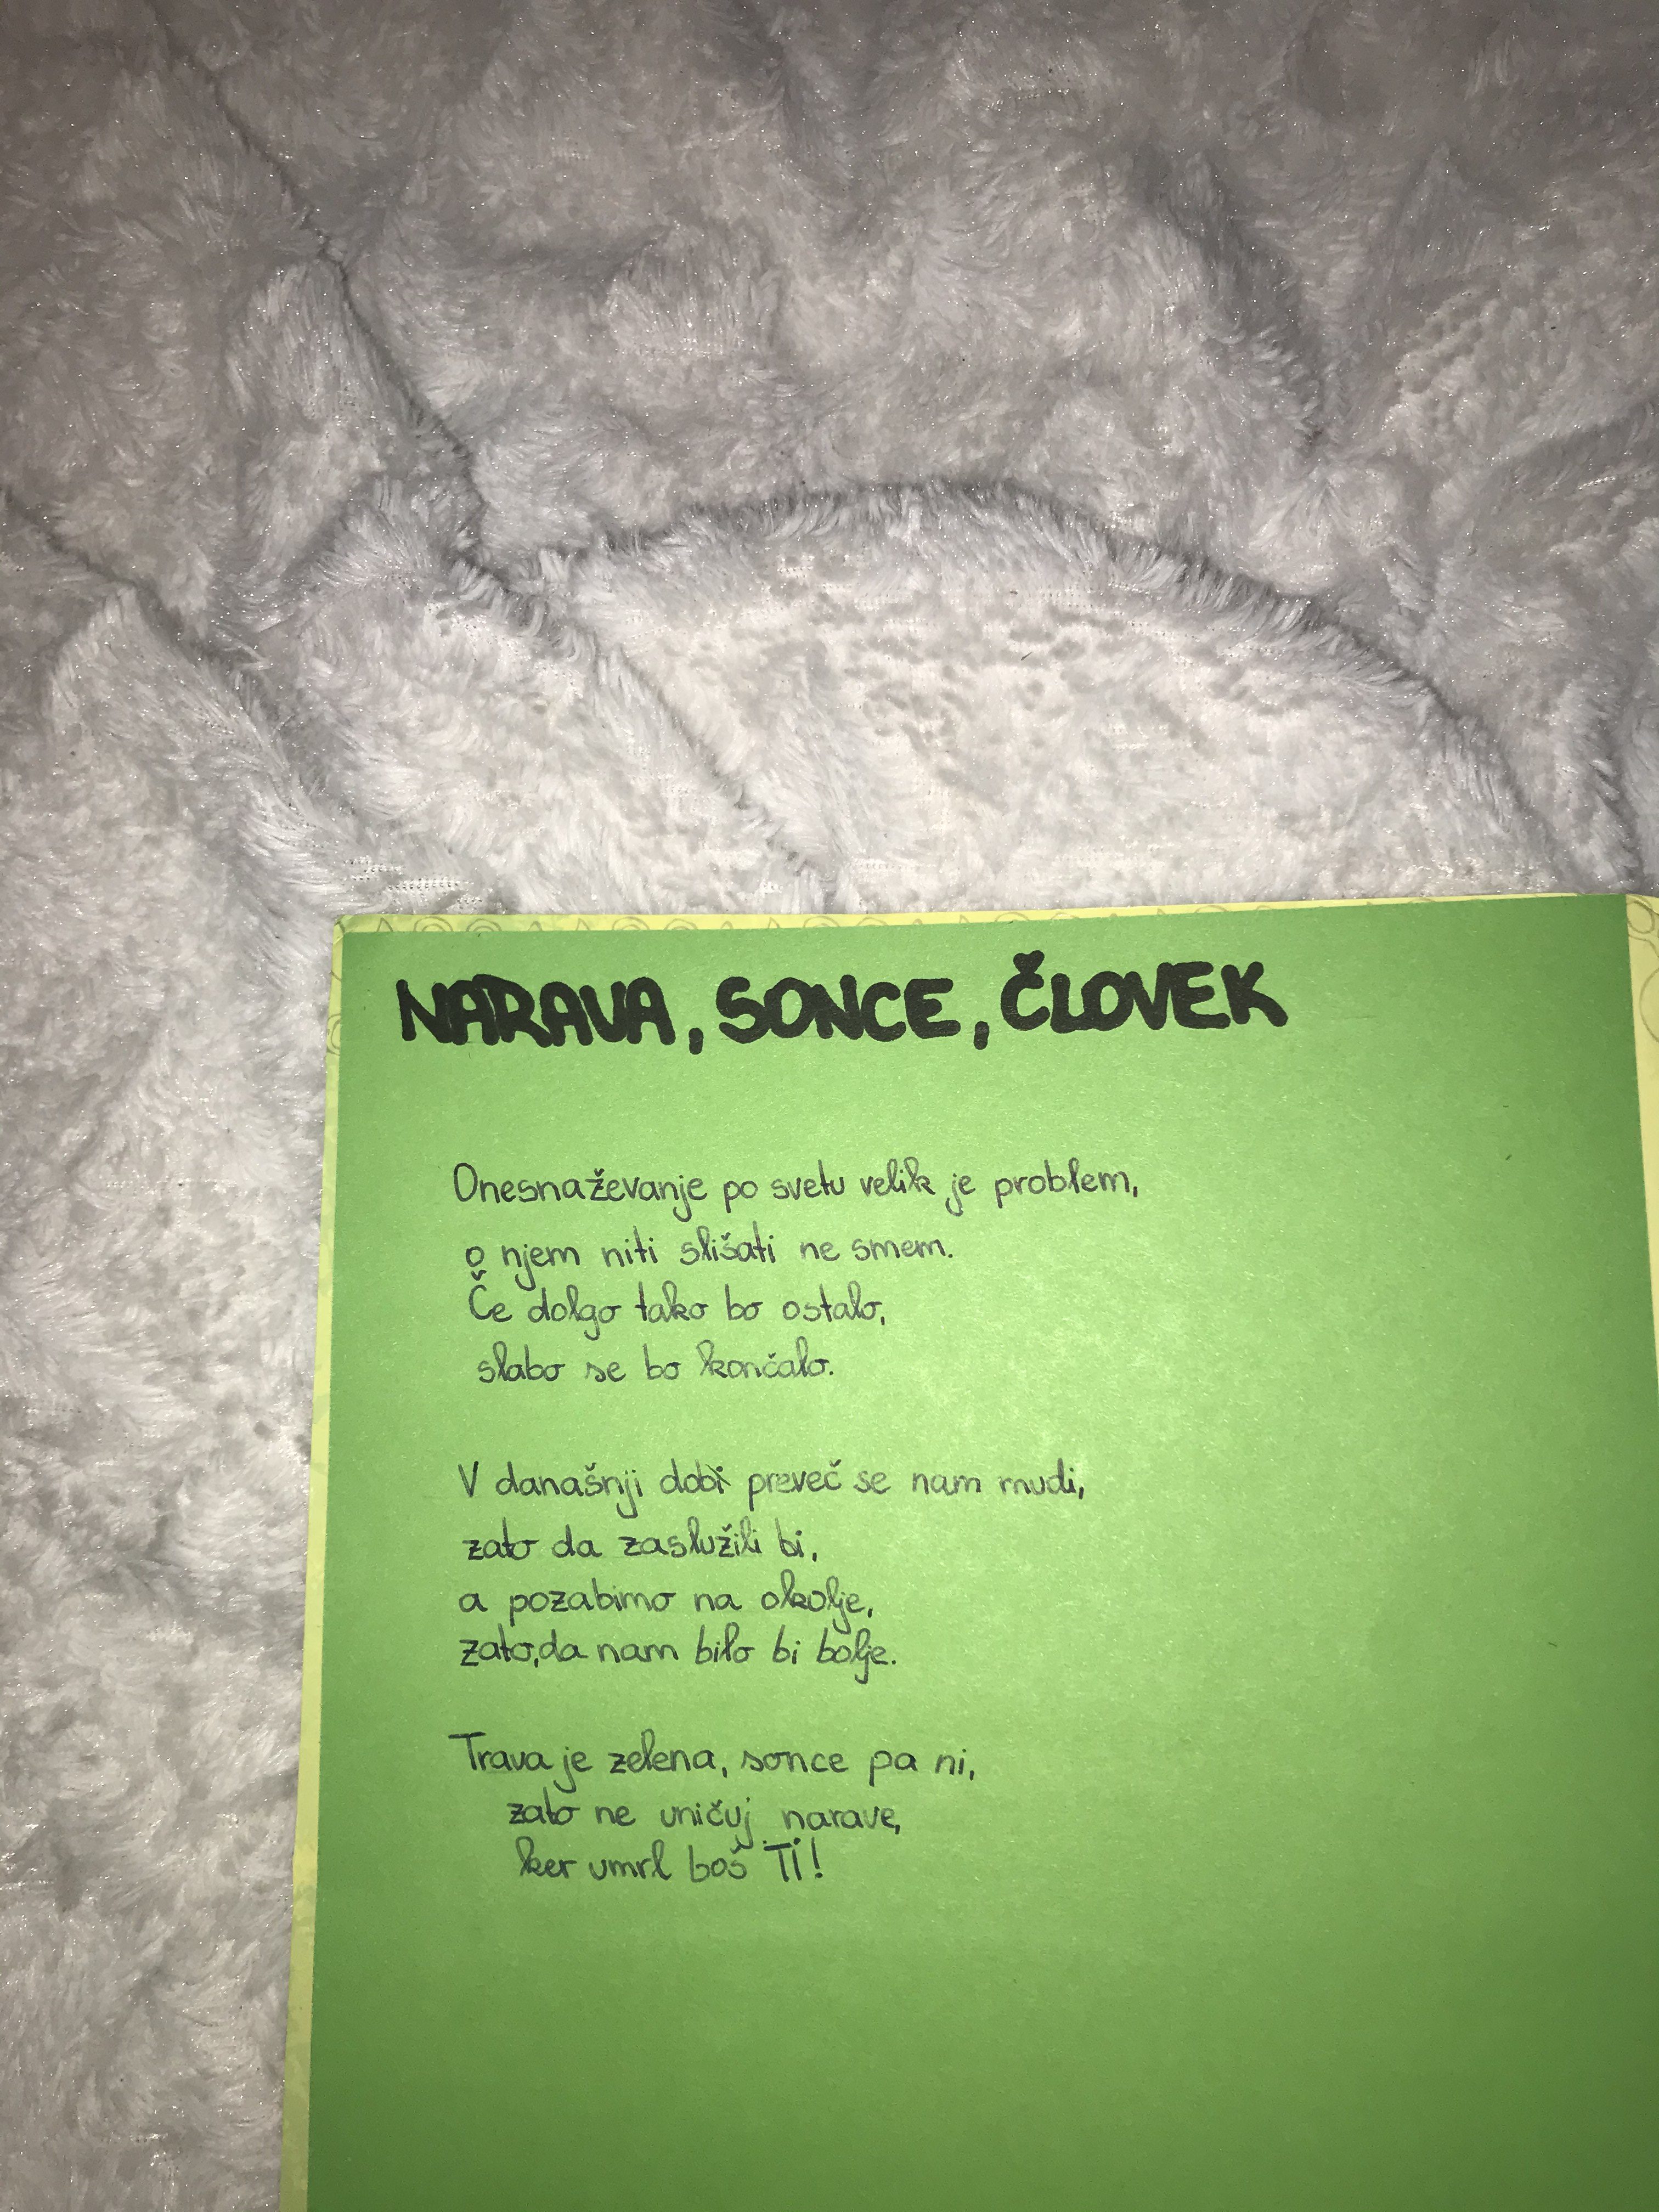 NARAVA, SONCE, ČLOVEK
Onesnaževanje po svetu velik je problem,
o njem niti slišati ne smem.
Če dolgo tako bo ostalo,
slabo se bo končalo.
V današnji dobi preveč se nam mudi,
zato da zaslužili bi,
a pozabimo na okolje,
zato,da nam bilo bi bolje.
Trava je zelena, sonce pa ni,
zato ne uničuj narave,
ker umrl boš TI!